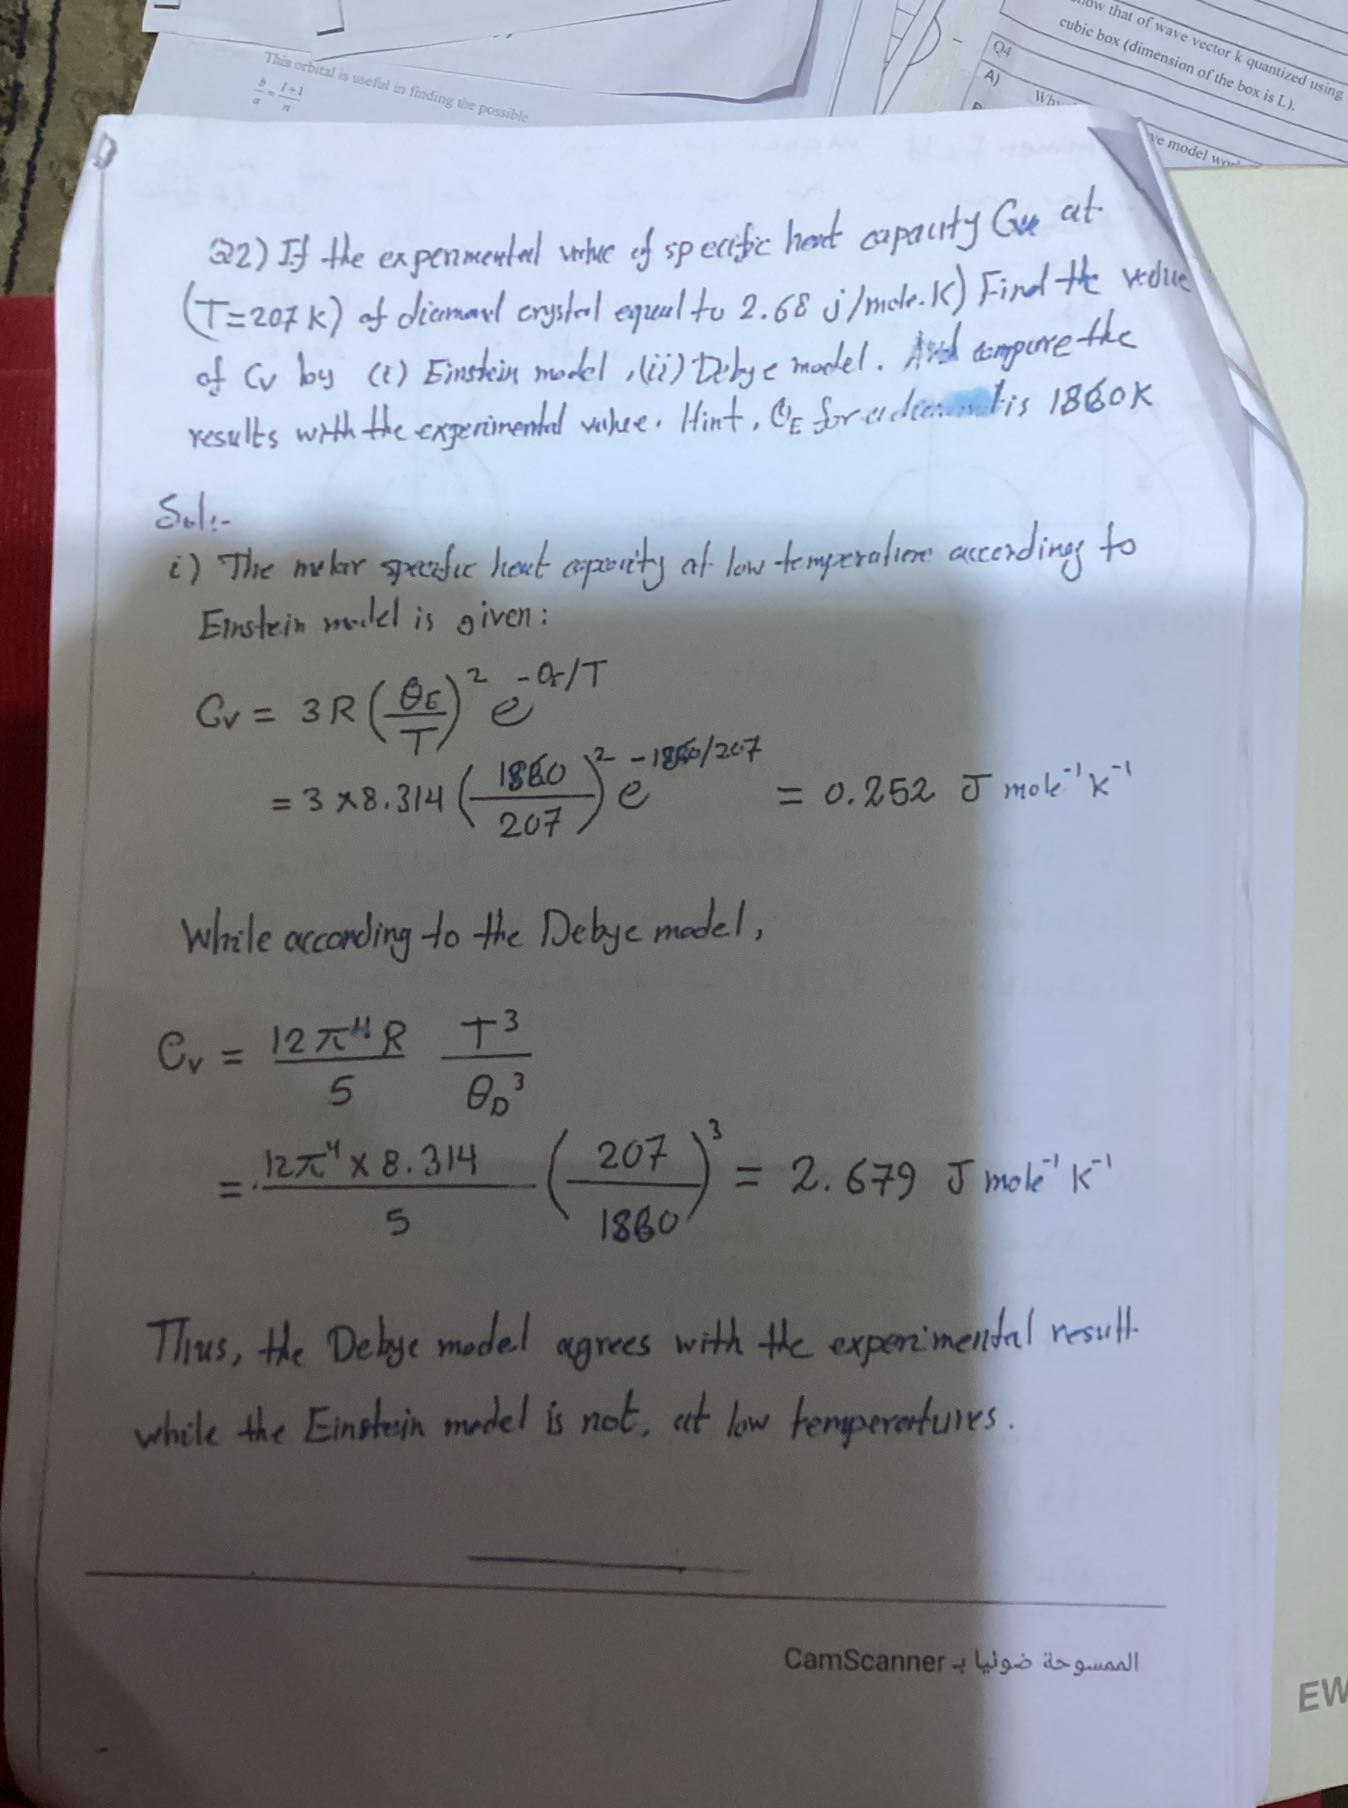 This orbital is useful in finding the possible
b/a = l+1/n
show that of wave vector k quantized using
cubic box (dimension of the box is L).
Q4
A)
Why
ve model wor
Q2) If the experimental value of specific heat capacity Cv at
(T=207 K) of diamond crystal equal to 2.68 j/mole.K) Find the value
of Cv by (i) Einstein model, (ii) Debye model. And compare the
results with the experimental value. Hint, θE for a diamond is 1860K
Sol:-
i) The molar specific heat capacity at low temperature according to
Einstein model is given:
Cv = 3R (θE/T)² e^-θE/T
= 3 × 8.314 (1860/207)² e^-1860/207 = 0.252 J mole⁻¹ K⁻¹
While according to the Debye model,
Cv = 12π⁴R/5 T³/θD³
= 12π⁴ × 8.314/5 (207/1860)³ = 2.679 J mole⁻¹ K⁻¹
Thus, the Debye model agrees with the experimental result
while the Einstein model is not, at low temperatures.
الممسوحة ضوئيا بـ CamScanner
EW